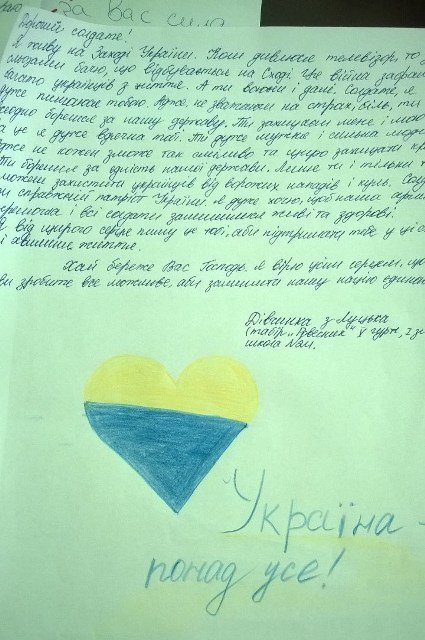 За Вас сила
Дорогий солдате!
Я живу на Заході України. Коли дивлюся телевізор, то
сльозами бачу, що відбувається на Сході. Ця війна забрал
багато українців з життя. А ти воюєш і далі. Солдате, я
дуже пишаюсь тобою. Адже, не зважаючи на страх, біль, ти
борешся за нашу державу. Ти захищаєш мене і мою
за це я дуже вдячна тобі. Ти дуже мужня і сильна люди
дже не кожен зможе так сміливо та щиро захищати кра
Ти борешся за єдність нашої держави. Лише ти і тільки т
можеш захистити українців від ворожих нападів і куль. Солд
ти справжній патріот України. Я дуже хочу, щоб наша армія
перемогла і всі солдати залишилися живі та здорові.
Я від щирого серця пишу це тобі, аби підтримати тебе у ці
і хвилини життя.
Хай береже Вас Господь. Я вірю усім серцем, що
ви зробите все можливе, аби залишити нашу націю єдиною
Дівчинка з Луцька
(табір „ " 8 гурт, 2 з
школа №21.
Україна
понад усе!